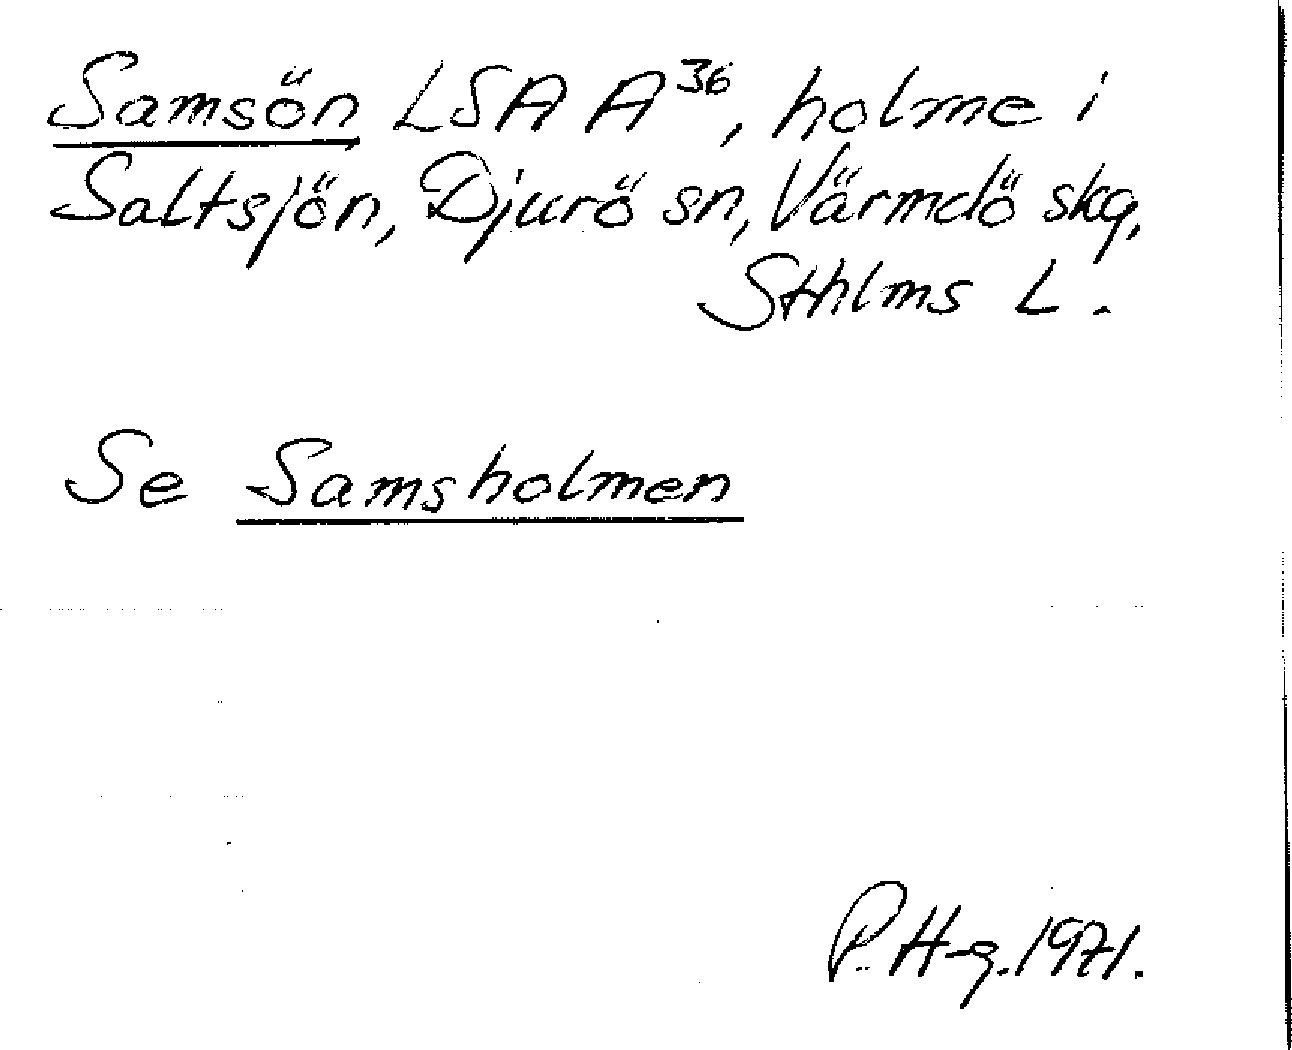 Samsön LSA A³⁶, holme i
Saltsjön, Djurö sn, Värmdö skg,
Sthlms L.
Se Samsholmen
P. H-g. 1971.